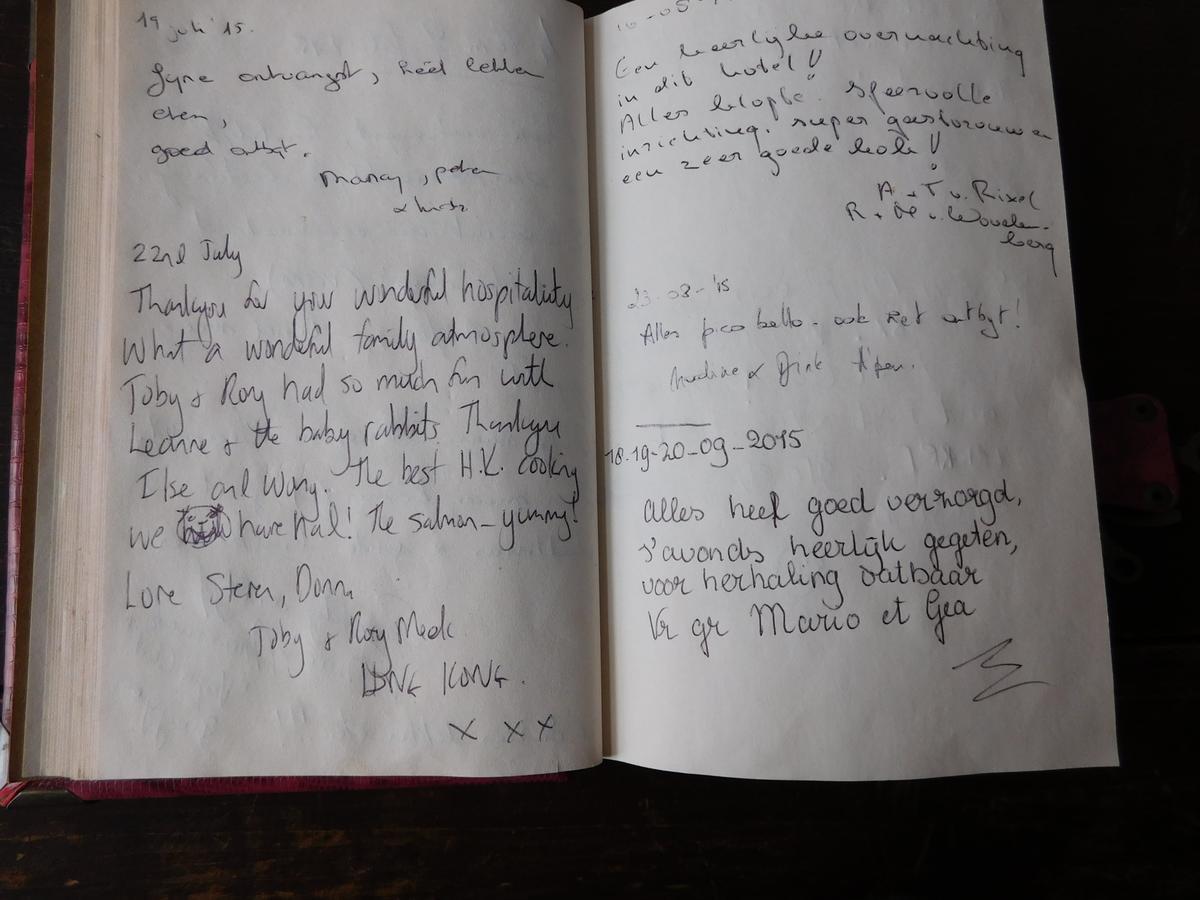 19 juli '15.
Fijne ontvangst, heel lekker
eten,
goed ontbijt.
22nd July
Thankyou for your wonderful hospitaliuty
What a wonderful family atmosphere.
Toby & Rory had so much fun with
Leanne & the baby rabbits. Thankyou
Ilse and Wony. The best H.K. cooking
we have had! The salmon - yummy!
Love Steven, Donna
Toby & Rory Meek
HONG KONG.
X X X
Een heerlijke overnachting
in dit hotel!!
Alles klopte. Sfeervolle
inrichting, super gastvrouw en
een zeer goede kok!!
A + T v. Rixel
R + M v. Wouden-
berg
23-08-'15
Alles pico bello - ook het ontbijt!
18-19-20-09-2015
alles heel goed verzorgd,
s'avonds heerlijk gegeten,
voor herhaling vatbaar
Vr gr Mario et Gea